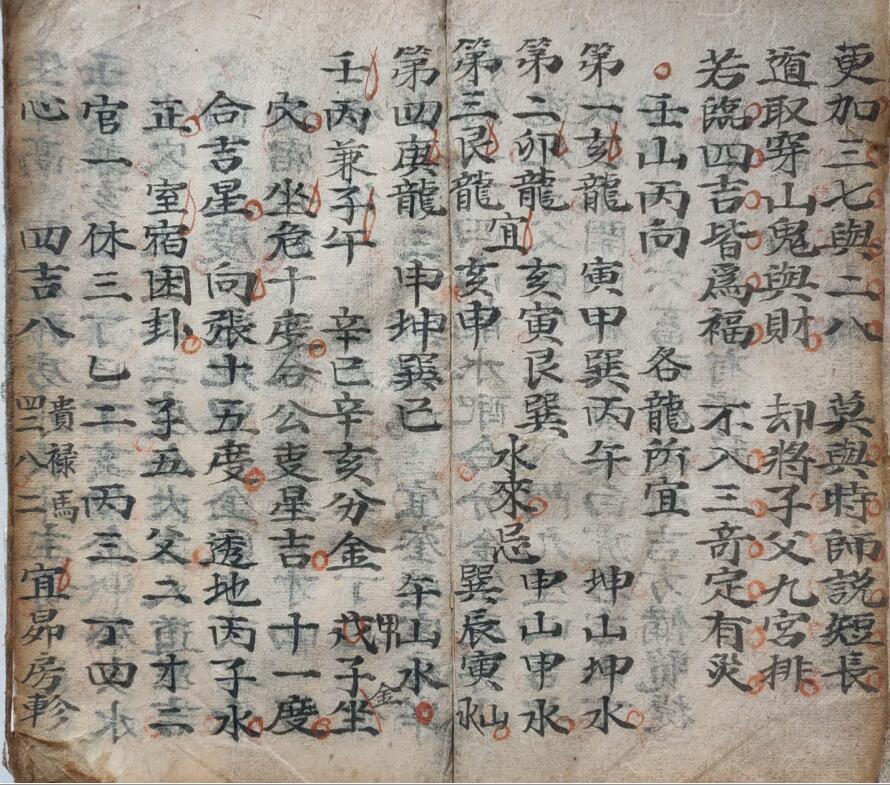 更加三七與二八 莫與時師説短長
遁取穿山鬼與財 却將子父九宮排
若臨四吉皆爲福 不入三竒定有災
壬山丙向 各龍所宜
第一亥龍 寅甲巽丙午 坤山坤水
第二卯龍 亥寅艮巽 申山申水
宜 水來忌
第三艮龍 亥申 巽辰寅山水
第四庚龍 申坤巽巳 午山水
壬丙兼子午 辛巳辛亥分金 戊子坐
穴 坐危十度分公吏星吉 十一度
合吉星 向張十五度 透地丙子水
正 室宿困卦 三子五父二才二
官一休三 乙二丙三 丁四
心 四吉八 貴祿馬 四二八二 宜昴房軫